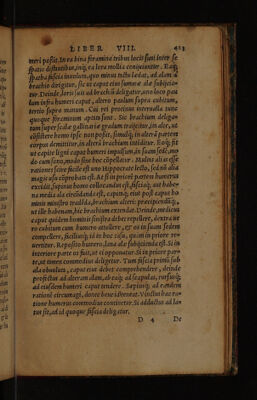 LIBER VIII. 423
meri possit. In ea bina foramina tribus locis sunt inter se
spatiis distantibus, inq; ea lora mollia coniiciuntur. Eaq;
spatha fascia inuoluta, quo minus tactu lædat, ad alam à
brachio dirigitur, sic ut caput eius summæ alæ subijcia-
tur. Deinde, loris suis ad brachiũ deligatur, uno loco pau
lum infra humeri caput, altero paulum supra cubitum,
tertio supra manum. Cui rei protinus interualla
quoque foraminum aptata sunt. Sic brachium deliga-
tum super scalæ gallinariæ gradum traijcitur, in alte, ut
consistere homo ipse non possit: simulq; in alterã partem
corpus demittitur, in alterã brachium intẽditur. Eoq; fit
ut capite ligni caput humeri impulsum, in suam sedẽ, mo
do cum sono, modo sine hoc cõpellatur. Multas alias esse
rationes scire facile est uno Hippocrate lecto, sed nõ alia
magis usu cõprobata est. At si in priorẽ partem humerus
excidit, supinus homo collocandus est, fasciaq; aut habe-
na media ala circũdanda est, capitaq; eius post caput ho
minis ministro tradẽda, brachium alteri: præcipiendũq;,
ut ille habenam, hic brachium extendat. Deinde, medicus
caput quidem hominis sinistra debet repellere, dextra ue
ro cubitum cum humero attollere, & os in suam sedem
compellere, faciliusq; id in hoc casu, quàm in priore re-
uertitur. Reposito humero, lana alæ subijcienda est. Si in
interiore parte os fuit, ut ei opponatur. Si in priore par-
te, ut tamen commodius deligetur. Tum fascia primũ sub
ala obuoluta, caput eius debet comprehendere, deinde
per pectus ad alteram alam, ab eaq; ad scapulas, rursusq;
ad eiusdem humeri caput tendere. Sæpiusq; ad eandem
rationẽ circumagi, donec bene id teneat. Vinctus hac ra-
tione humerus commodius continetur. Si adductus ad la-
tus sit, ad id quoque fascia deligatur.
D 4 De